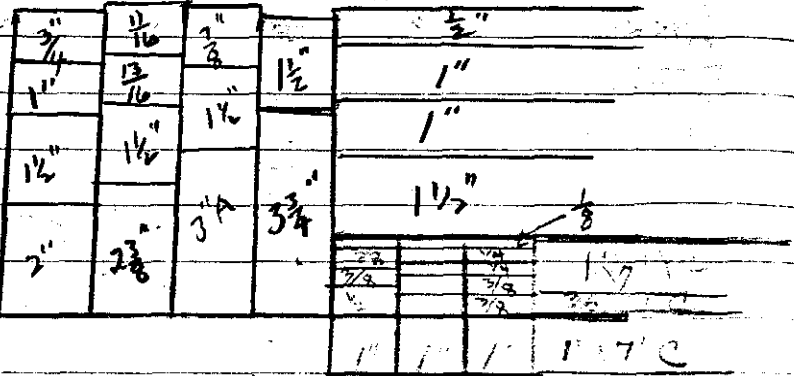 3/4"
1"
1 1/2"
2"
11/16
13/16
1 1/2"
2 3/8"
3/8"
1 1/2"
3"
1 1/2"
3 3/4"
1/2"
1"
1"
1 1/2"
1/8
3/8
1/4
1/4
3/8
3/8
1"
1"
1"